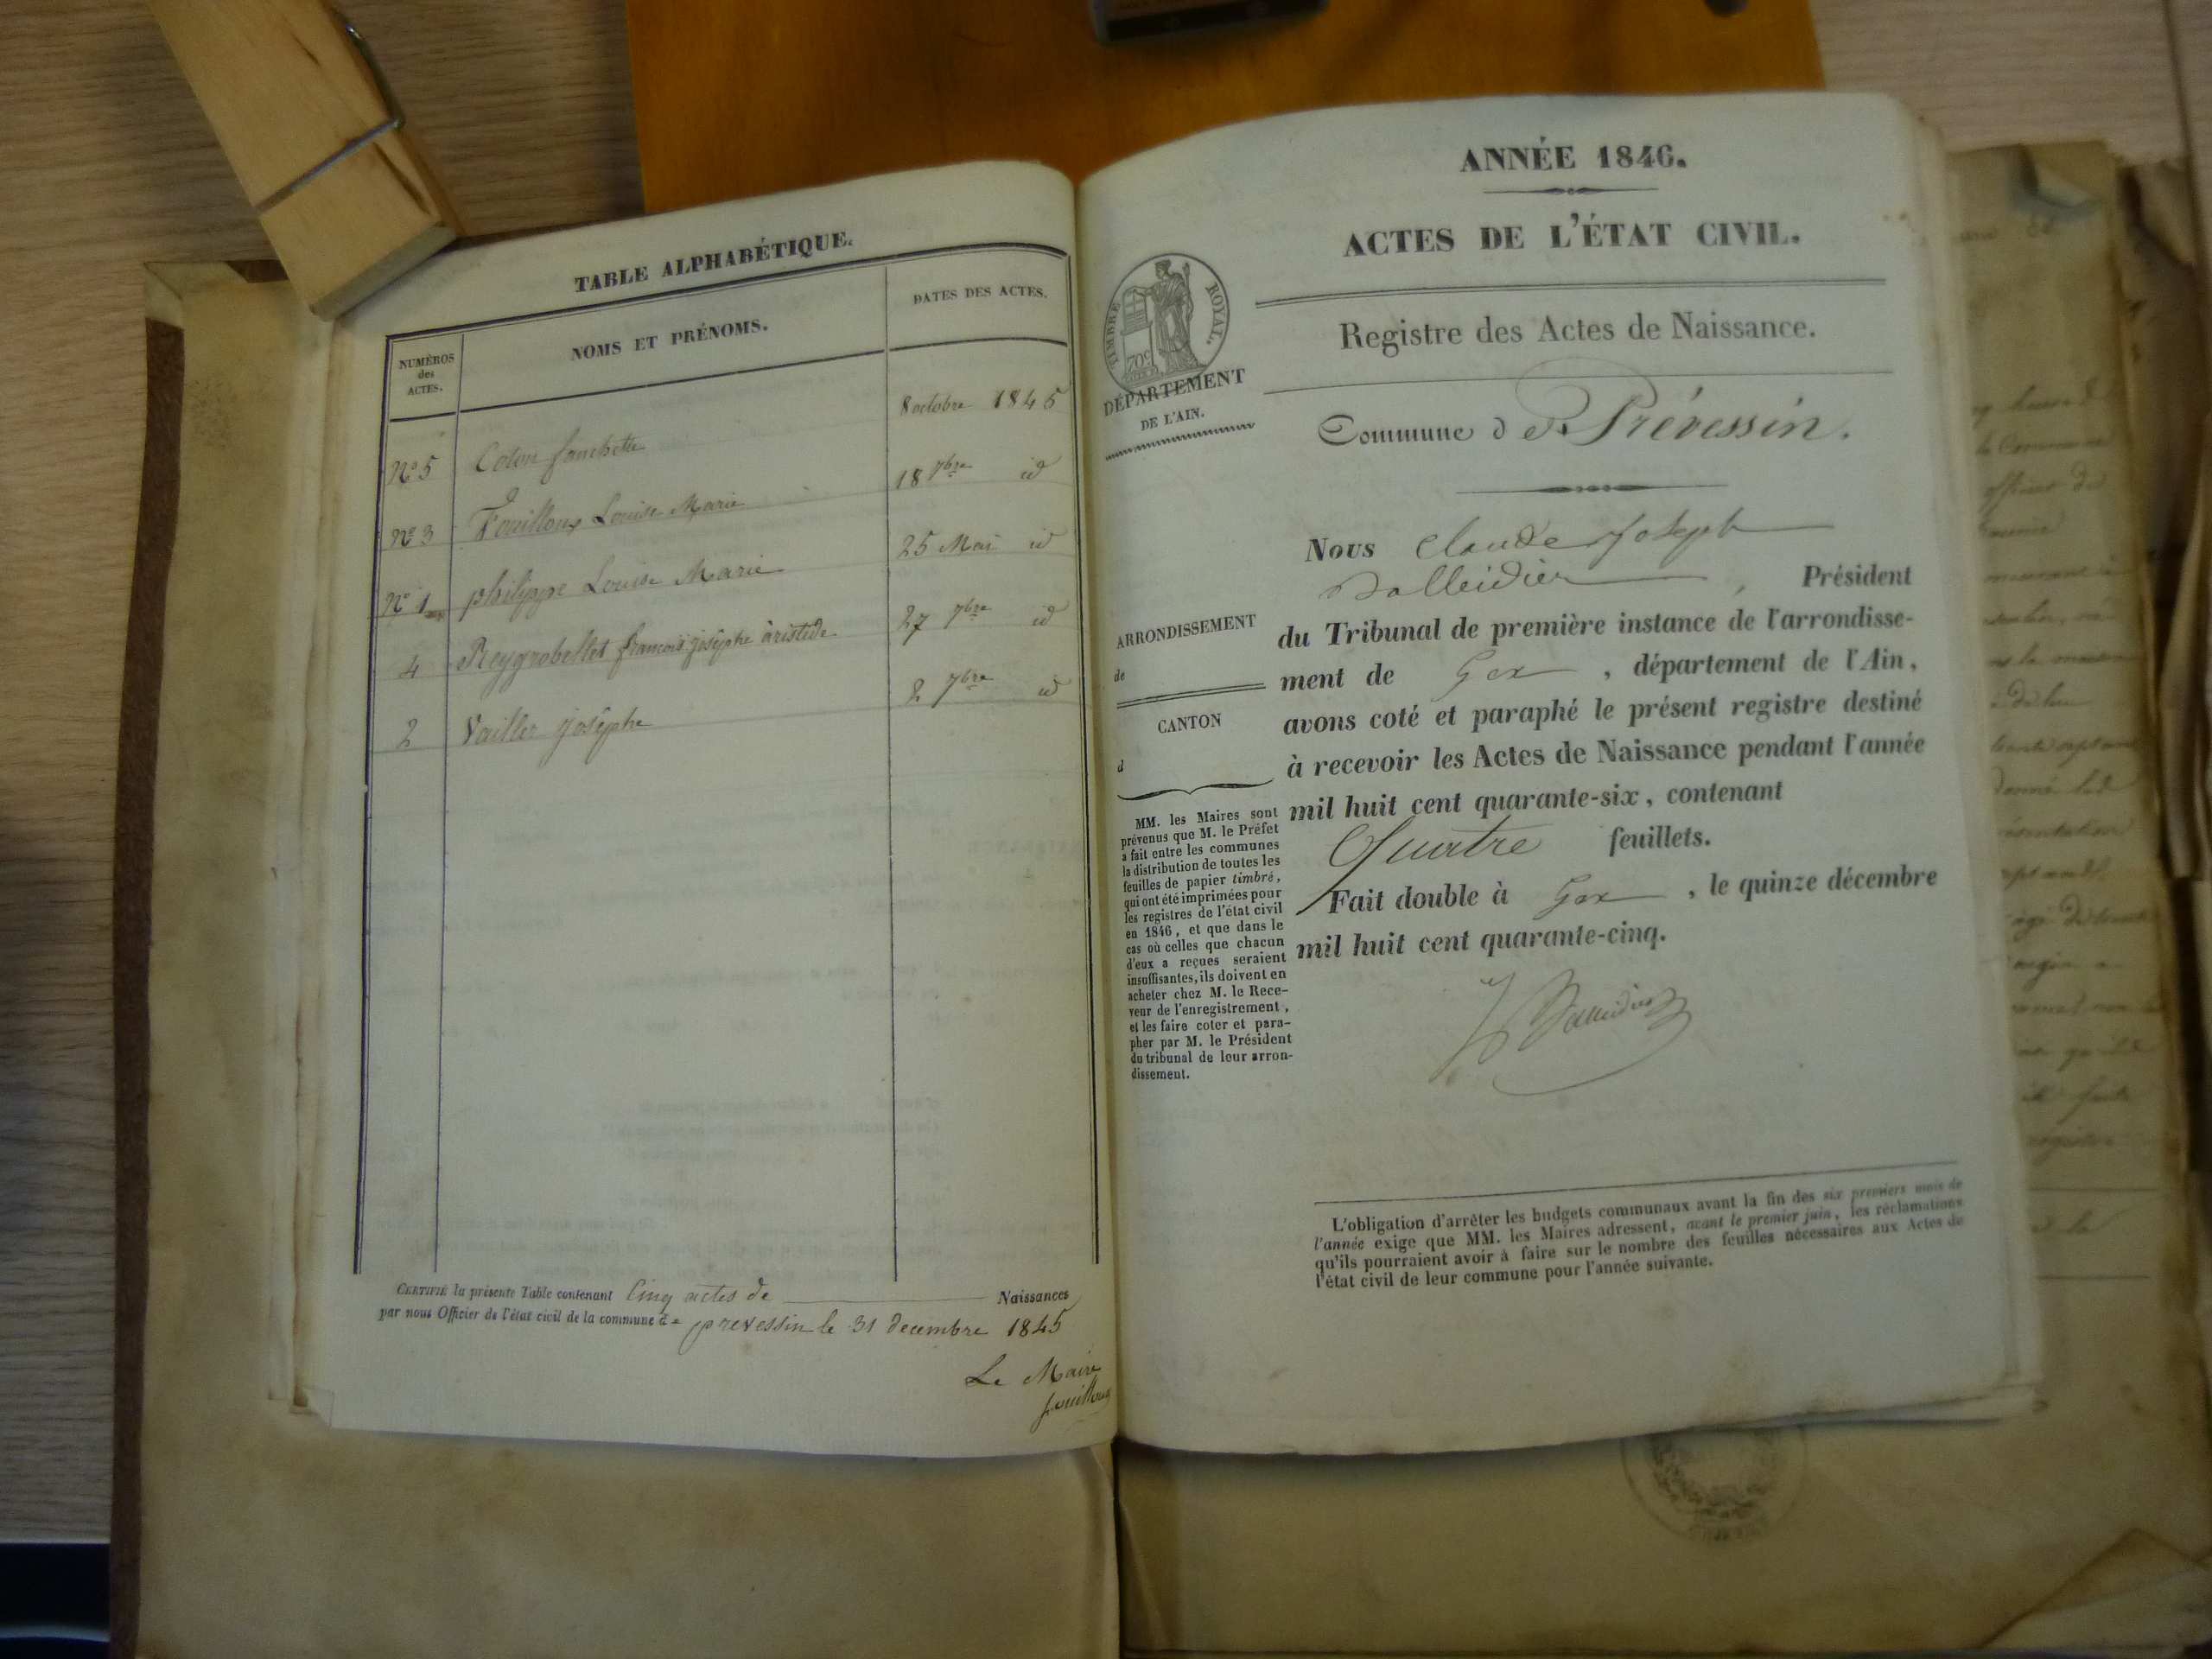 TABLE ALPHABÉTIQUE.
NUMÉROS
des
ACTES.
NOMS ET PRÉNOMS.
DATES DES ACTES.
N° 5 Coton fanchette 8 octobre 1845
N° 3 Fouilloux Louise Marie 18 7bre id
N° 1 philippe Louise Marie 25 Mai id
4 Reygrobellet francois josêphe aristide 27 7bre id
2 Vailler josêphe 2 7bre id
CERTIFIÉ la présente Table contenant Cinq actes de Naissances
par nous Officier de l'état civil de la commune de prevessin le 31 decembre 1845
Le Maire
fouilloux
ANNÉE 1846.
ACTES DE L'ÉTAT CIVIL.
TIMBRE ROYAL.
70c
DÉPARTEMENT
DE L'AIN.
Registre des Actes de Naissance.
Commune de Prévessin.
Nous Claude Joseph
, Président
du Tribunal de première instance de l'arrondisse-
ment de Gex , département de l'Ain,
avons coté et paraphé le présent registre destiné
à recevoir les Actes de Naissance pendant l'année
mil huit cent quarante-six, contenant
Quatre feuillets.
Fait double à Gex , le quinze décembre
mil huit cent quarante-cinq.
ARRONDISSEMENT
de
CANTON
d
MM. les Maires sont
prévenus que M. le Préfet
a fait entre les communes
la distribution de toutes les
feuilles de papier timbré,
qui ont été imprimées pour
les registres de l'état civil
en 1846, et que dans le
cas où celles que chacun
d'eux a reçues seraient
insuffisantes, ils doivent en
acheter chez M. le Rece-
veur de l'enregistrement,
et les faire coter et para-
pher par M. le Président
du tribunal de leur arron-
dissement.
L'obligation d'arrêter les budgets communaux avant la fin des six premiers mois de
l'année exige que MM. les Maires adressent, avant le premier juin, les réclamations
qu'ils pourraient avoir à faire sur le nombre des feuilles nécessaires aux Actes de
l'état civil de leur commune pour l'année suivante.